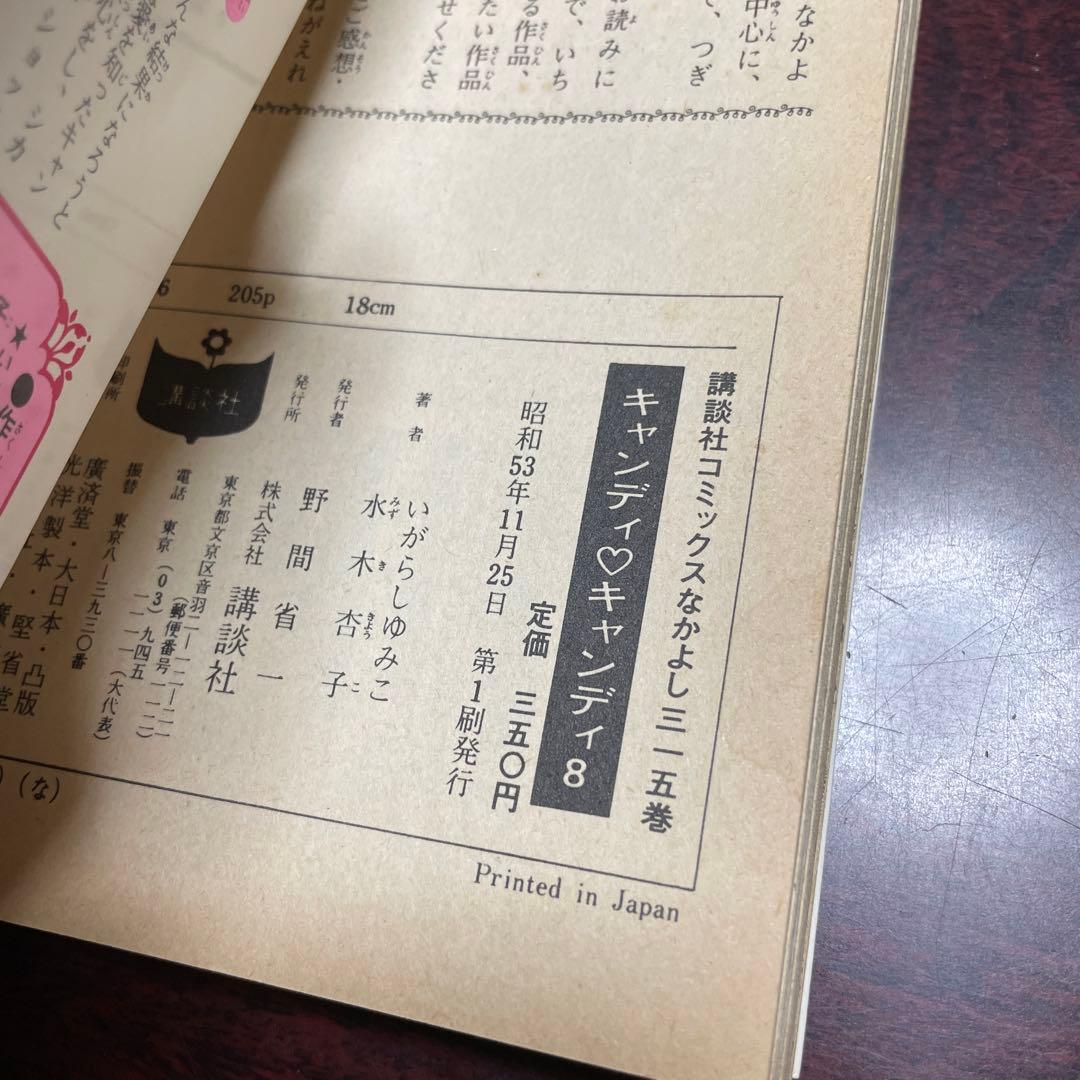 なかよ
中心に、
て、つぎ
お読みに
で、いち
る作品、
たい作品
せくださ
ご感想・
ねがえれ
んな結果になろうと
ショックシカ
205p
18cm
講談社コミックスなかよし三一五巻
キャンディ♡キャンディ8
定価 三五〇円
昭和53年11月25日 第1刷発行
著者 いがらしゆみこ
水木杏子
発行者 野間省一
発行所 株式会社 講談社
東京都文京区音羽二―一二―二一
(郵便番号一一二)
電話 東京(03)九四五
一一一一(大代表)
振替 東京八―三九三〇番
講談社
印刷所
廣済堂・大日本・凸版
光洋製本・堅省堂
(な)
Printed in Japan